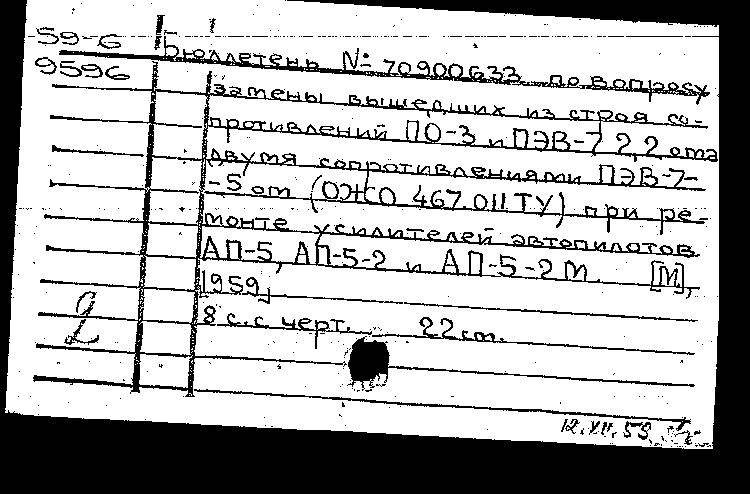 59-6 Бюллетень № 70900633 по вопросу
9596 замены вышедших из строя со-
противлений ПО-3 и ПЭВ-7 2,2 ома
двумя сопротивлениями ПЭВ-7-
-5 ом (ОЖО 467.011 ТУ) при ре-
монте усилителей автопилотов
АП-5, АП-5-2 и АП-5-2М. [М],
1959
8 с.с черт. 22 см.
2
12.XII.59